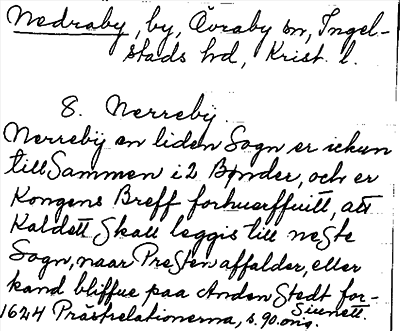 Nedraby, by, Övraby sn, Ingel-
stads hd, Krist. l.
8. Nerrebÿ.
Nerrebÿ en liden Sogn er ickun
till Sammen i 2 Bønder, och er
Kongens Breff forhuerffuitt, att
Kaldett skall leggis till neste
Sogn, naar Presten affalder, eller
kand bliffue paa Anden stedt for-
Siunett.
1624 Prästrelationerna, s. 90. orig.